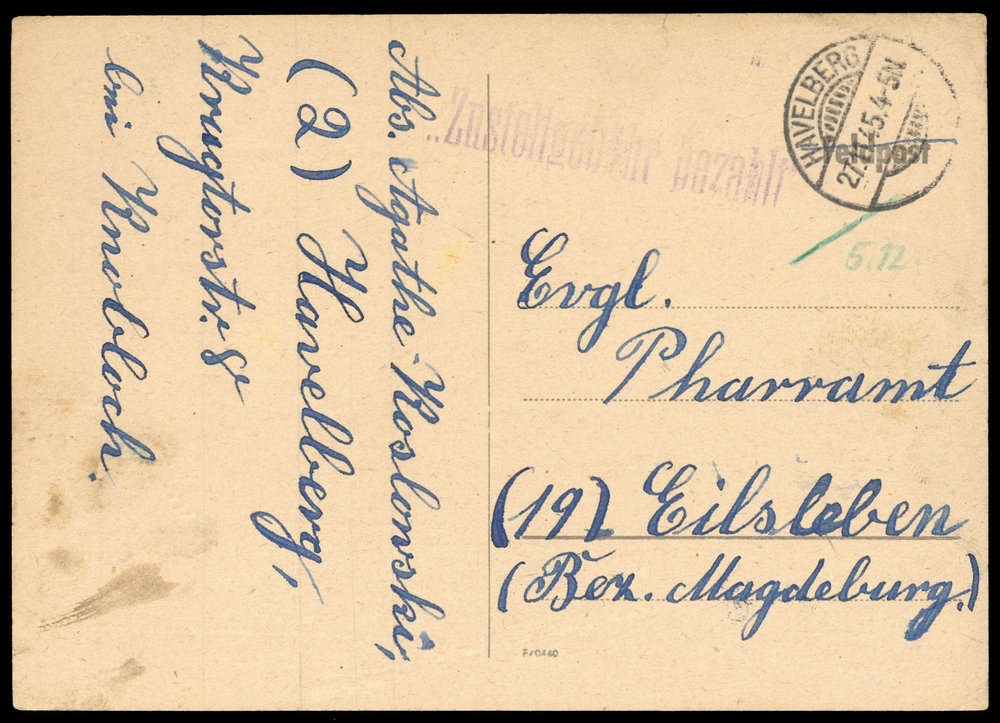 Abs. Agathe Koslowski,
(2) Havelberg,
Krugtorstr. 8
bei Knobloch.
„Zustellgebühr bezahlt"
HAVELBERG
45.4-5N
Feldpost
5.12.
Evgl.
Pharramt
(19) Eilsleben
(Bez. Magdeburg.)